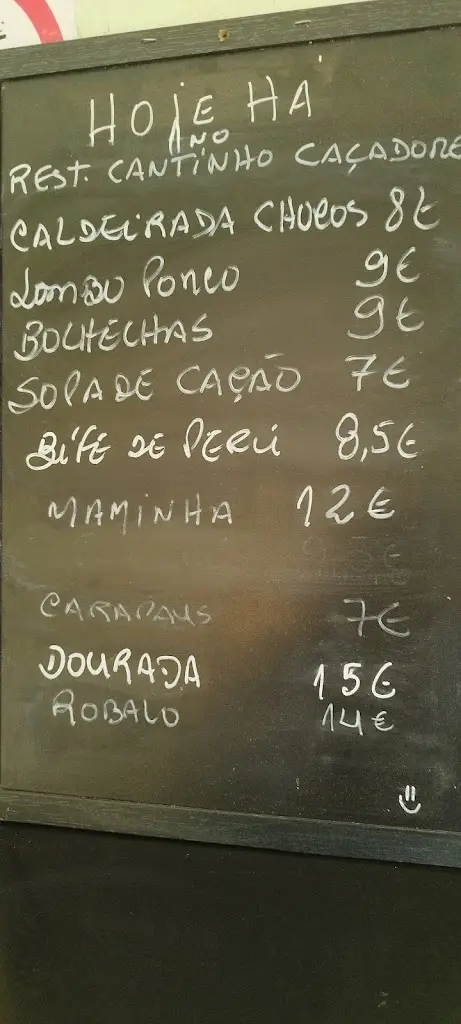 HOJE HÁ
NO
REST. CANTINHO CAÇADORE
CALDEIRADA CHOCOS 8€
LOMBO PORCO 9€
BOCHECHAS 9€
SOPA DE CAÇÃO 7€
BIFE DE PERU 8,5€
MAMINHA 12€
9,5€
CARAPAUS 7€
DOURADA 15€
ROBALO 14€